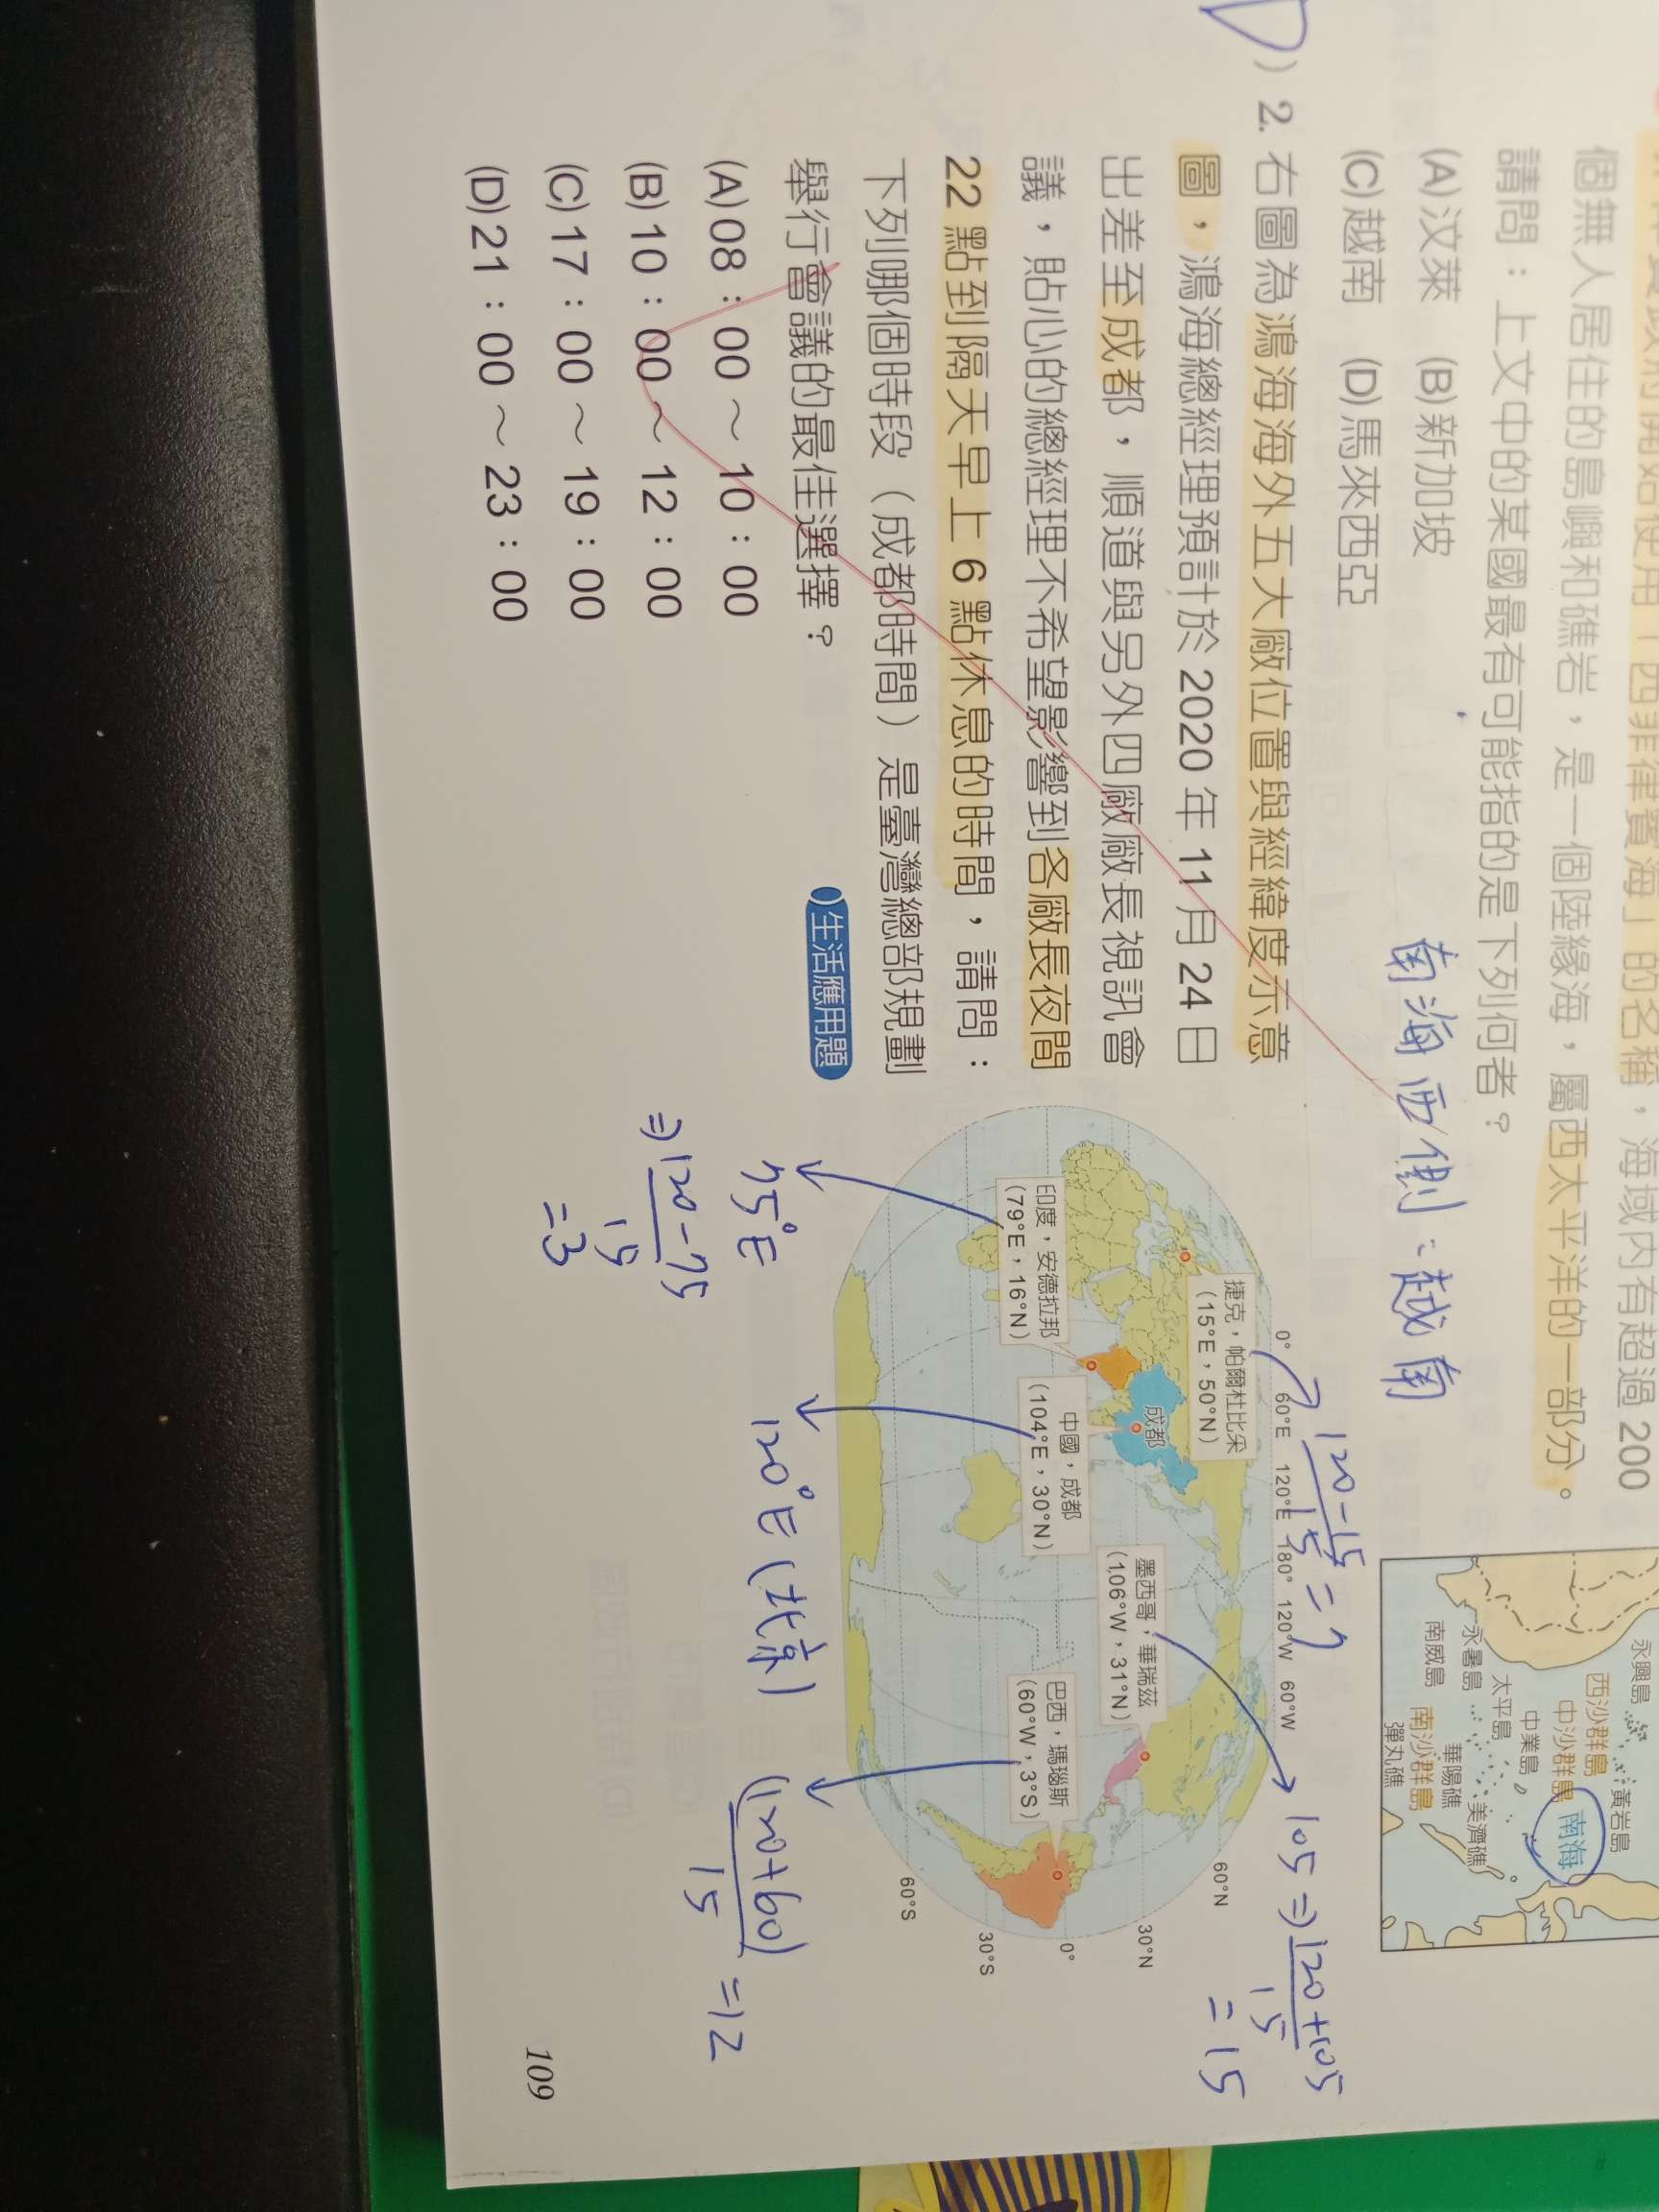 個無人居住的島嶼和礁岩，是一個陸緣海，屬西太平洋的一部分。
請問：上文中的某國最有可能指的是下列何者？
(A)汶萊 (B)新加坡
(C)越南 (D)馬來西亞
南海西側：越南
永興島
西沙群島
黃岩島
中沙群島
南海
中業島
太平島
永暑島
美濟礁
華陽礁
南威島
南沙群島
彈丸礁
D ) 2. 右圖為鴻海海外五大廠位置與經緯度示意
圖，鴻海總經理預計於 2020 年 11 月 24 日
出差至成都，順道與另外四廠廠長視訊會
議，貼心的總經理不希望影響到各廠長夜間
22 點到隔天早上 6 點休息的時間，請問：
下列哪個時段（成都時間）是臺灣總部規劃
舉行會議的最佳選擇？
生活應用題
(A)08：00～10：00
(B)10：00～12：00
(C)17：00～19：00
(D)21：00～23：00
120-15
15
=7
0° 60°E 120°E 180° 120°W 60°W
60°N
30°N
0°
30°S
60°S
捷克，帕爾杜比采
(15°E，50°N)
成都
墨西哥，華瑞茲
(106°W，31°N)
印度，安德拉邦
(79°E，16°N)
中國，成都
(104°E，30°N)
巴西，瑪瑙斯
(60°W，3°S)
105⇒120+105
15
=15
75°E
⇒120-75
15
=3
120°E(北京)
(120+60)
15
=12
109